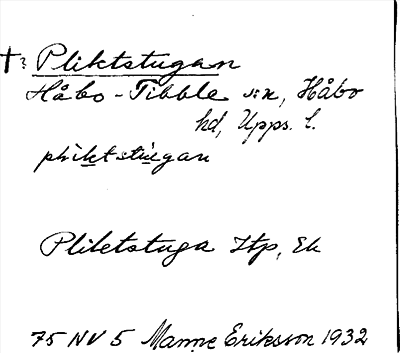 †? Pliktstugan
Håbo-Tibble sn, Håbo
hd, Upps. l.
pliktstugan
Pliktstuga Htp, Ek
75 NV 5 Manne Eriksson 1932